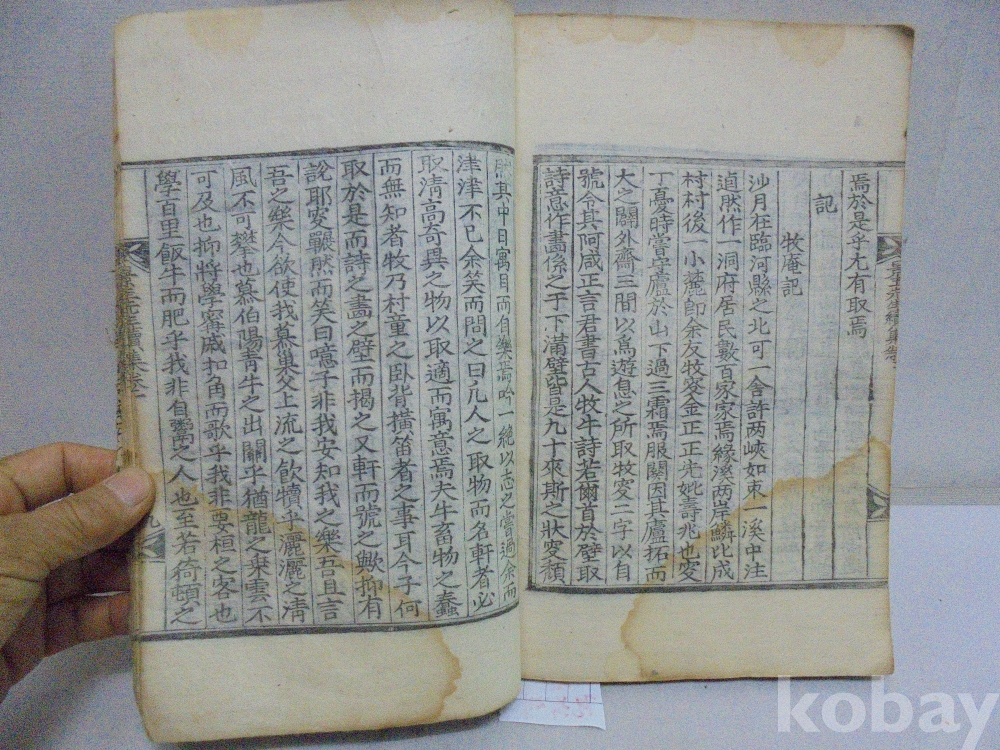 焉於是乎尤有取焉
記
牧庵記
沙月在臨河縣之北可一舍許两峽如束一溪中注
逌然作一洞府居民數百家家焉緣溪两岸鱗比成
村村後一小麓即余友牧窔金正正先妣壽兆也窔
丁憂時嘗占廬於山下過三霜焉服闋因其廬拓而
大之闢外齋三間以爲遊息之所取牧窔二字以自
號令其阿咸正言君書古人牧牛詩若爾首於壁取
詩意作畵係之于下下滿壁皆是九十來斯之狀窔頹
然其中日寓目而自樂焉吟一絶以志之嘗過余而
津津不已余笑而問之曰凡人之取物而名軒者必
取淸高奇異之物以取適而寓意焉夫牛畜物之蠢
而無知者牧乃村童之卧背橫笛者之事耳今子何
取於是而詩之畵之壁而揭之又軒而號之歟抑有
說耶窔囅然而笑曰噫子非我安知我之樂吾且言
吾之樂今欲使我慕巢父上流之飮犢乎灑灑之淸
風不可攀也慕伯陽靑牛之出關乎猶龍之乘雲不
可及也抑將學甯戚扣角而歌乎我非要桓之客也
學百里飯牛而肥乎我非自鬻之人也至若猗頓之
九
kobay